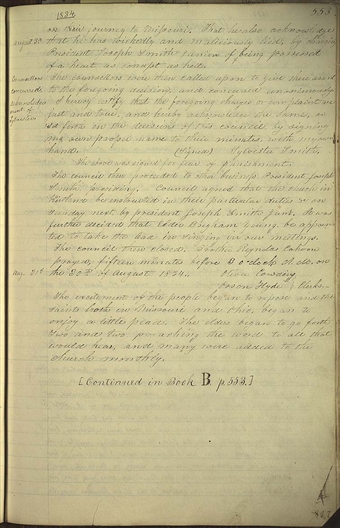 1834
553
on their journey to Missouri. That he also acknowledge
August 28
that he has wickedly and maliciously lied, by charging
President Joseph Smith junior of being possessed
of a heart as corrupt as hell.
Councillors
The councillors were then called upon to give their assent
concurred
to the foregoing decision, and concurred unanimously
acknowledge-
I hereby certify that the foregoing charges or complaints are
ment of
just and true, and hereby acknowledge the same, as
Sylvester
set forth in the decision of this council by signing
my own proper name to this minutes with my own
hand. (Signed) Sylvester Smith.
The above was signed for fear of punishment.
The council then proceeded to other business President Joseph
Smith presiding. Council agreed that the church in
Kirtland be instructed in their particular duties on
Sunday next by president Joseph Smith junr. It was
further decided that Elder Brigham Young be appoin-
ted to take the lead in singing in our meetings.
The council then closed. Elder Reynolds Cahoon
prayed, fifteen minutes before 2 o'clock A.M. on
Aug. 29th
the 30th of August 1834. Oliver Cowdery
Orson Hyde } Clerks.
The excitement of the people began to subside and the
saints both in Missouri and Ohio, began to
enjoy a little peace. The elders began to go forth
two and two preaching the word to all that
would hear, and many were added to the
church monthly.
[Continued in Book B, p 553.]